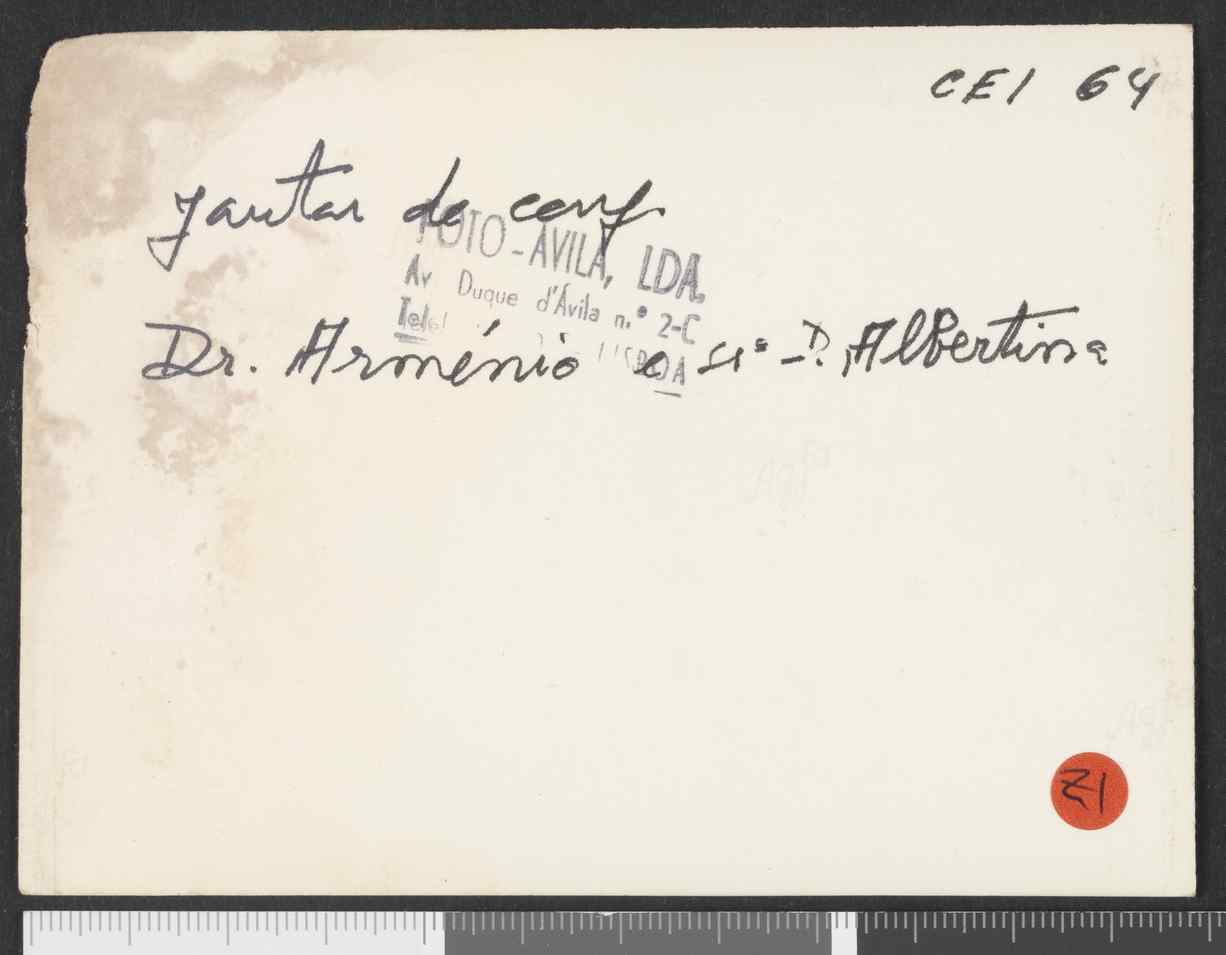 CEI 64
jantar de conf
FOTO-ÁVILA, LDA.
Av Duque d'Ávila n.º 2-C
Telef
LISBOA
Dr. Arménio e Srª D. Albertina
Z1